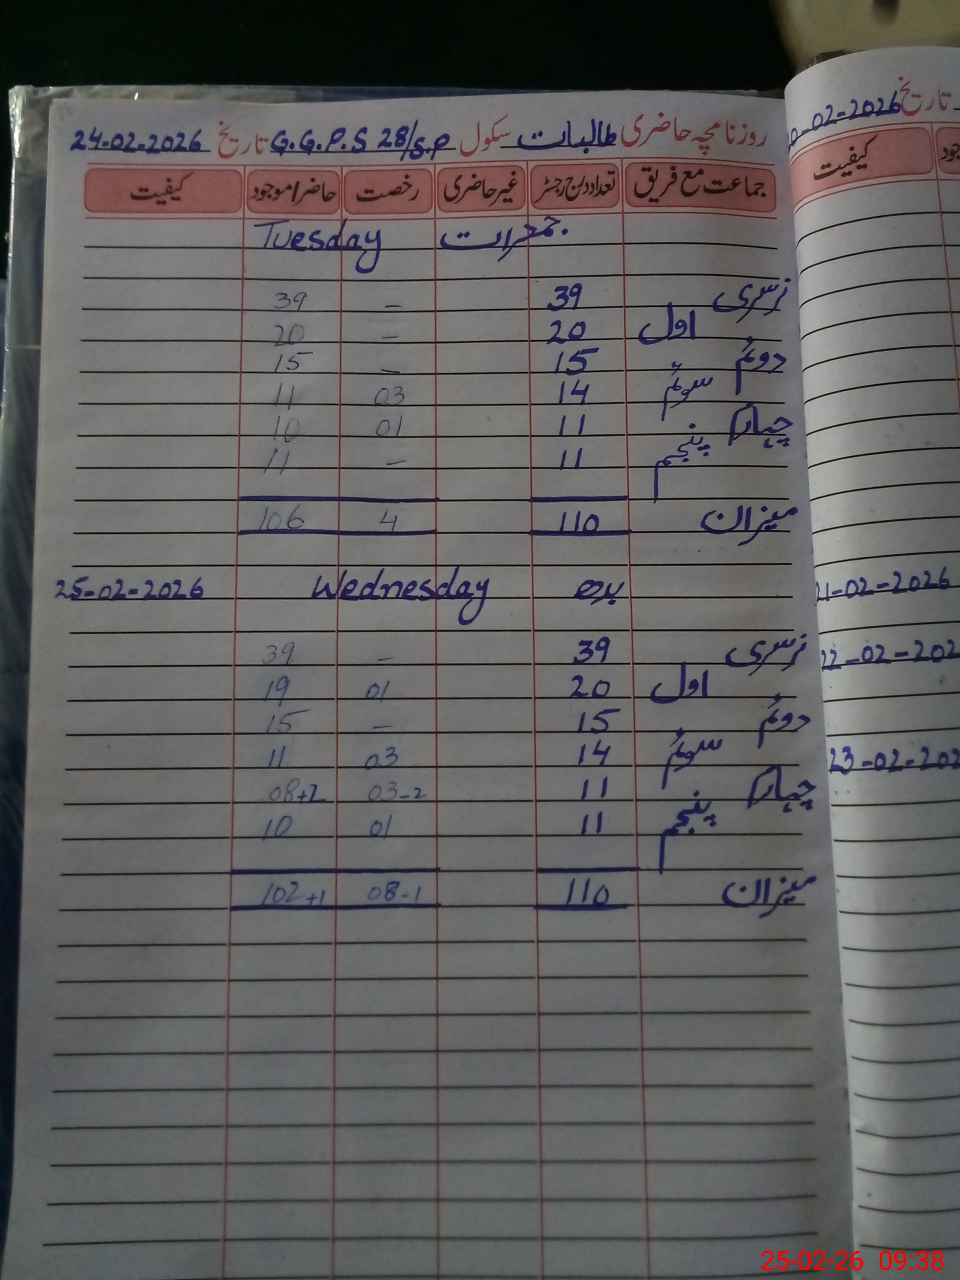 روزنامچہ حاضری طالبات سکول G.G.P.S 28/S.P تاریخ 24-02-2026
جماعت مع فریق تعداد درج رجسٹر غیر حاضری رخصت حاضر/موجود کیفیت
جمعرات Tuesday
نرسری 39 - 39
اول 20 - 20
دوئم 15 - 15
سوئم 14 03 11
چہارم 11 01 10
پنجم 11 - 11
میزان 110 4 106
بدھ Wednesday 25-02-2026
نرسری 39 - 39
اول 20 01 19
دوئم 15 - 15
سوئم 14 03 11
چہارم 11 03-2 08+2
پنجم 11 01 10
میزان 110 08-1 102+1
تاریخ -02-2026
کیفیت
21-02-2026
22-02-202
23-02-202
25-02-26 09:38